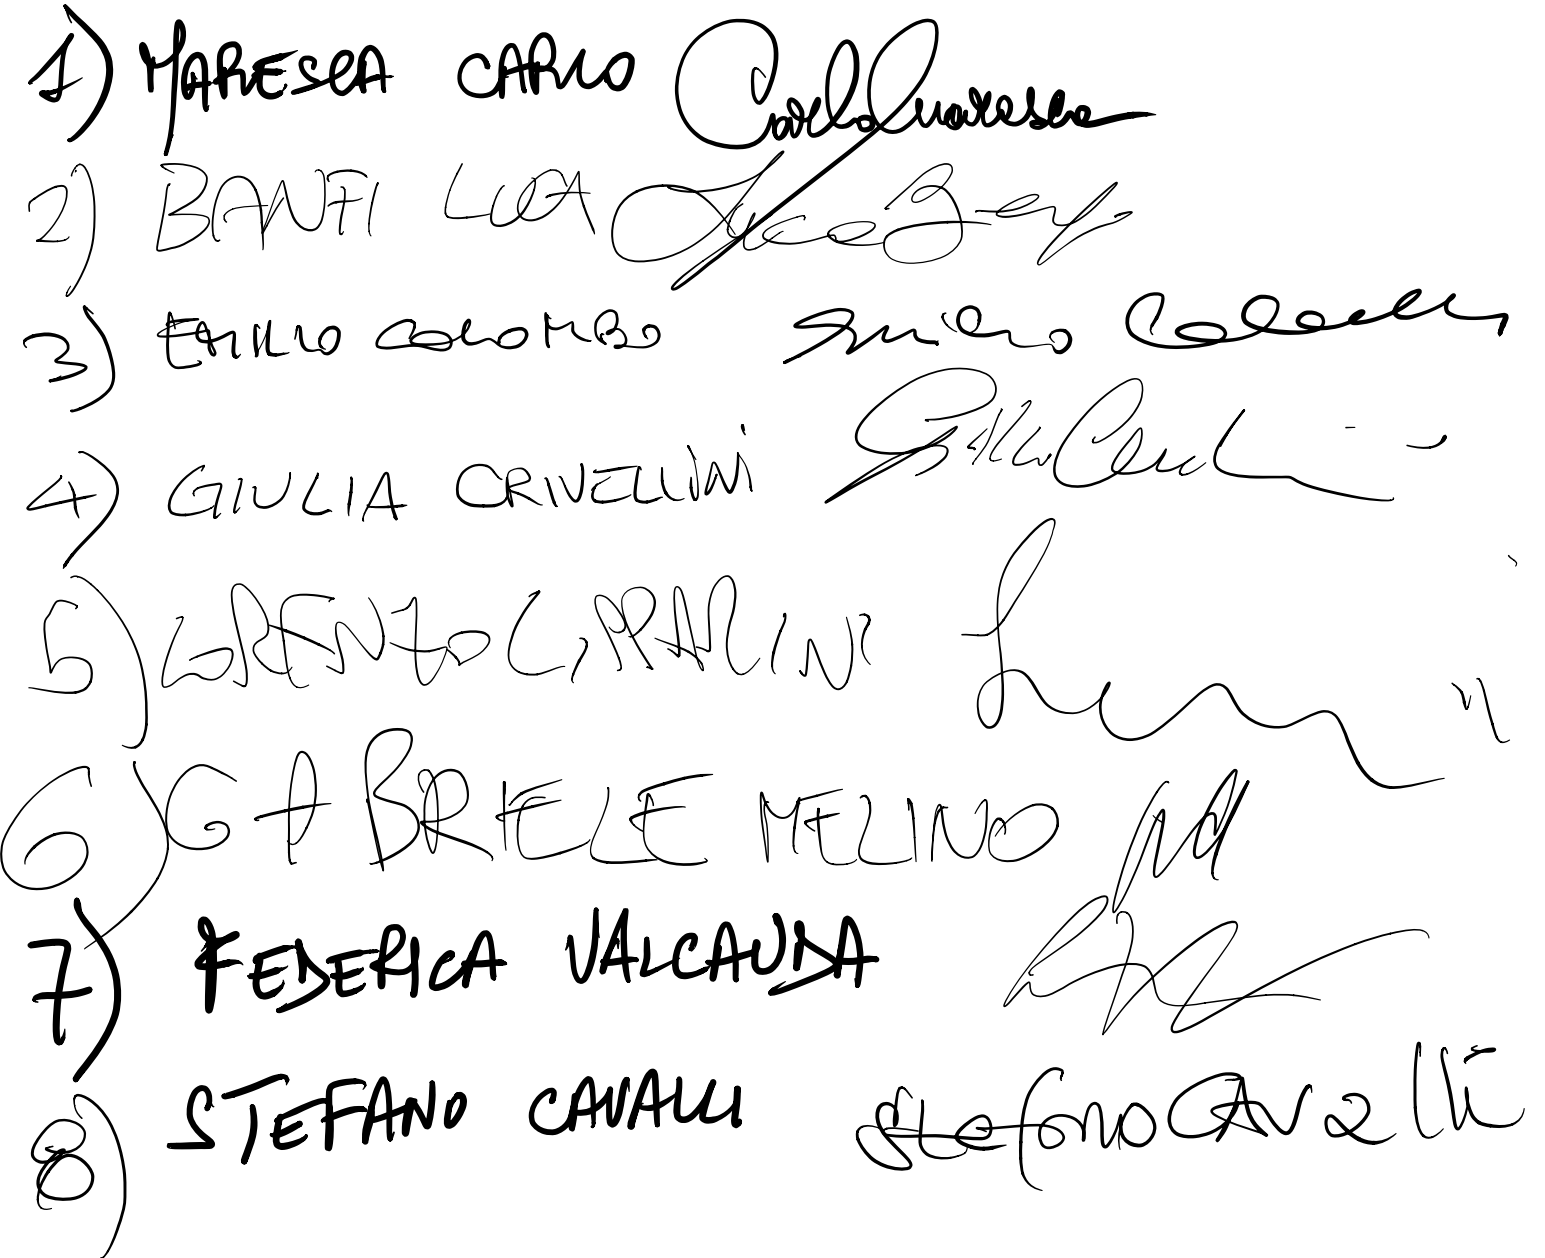 1) MARESCA CARLO Carlo Maresca
2) BANFI LUCA Luca Banfi
3) EMILIO COLOMBO Emilio Colombo
4) GIULIA CRIVELLINI
5) LORENZO LIPPARINI
6) GABRIELE MELINO
7) FEDERICA VALCAUDA
8) STEFANO CAVALLI Stefano CAVALLI